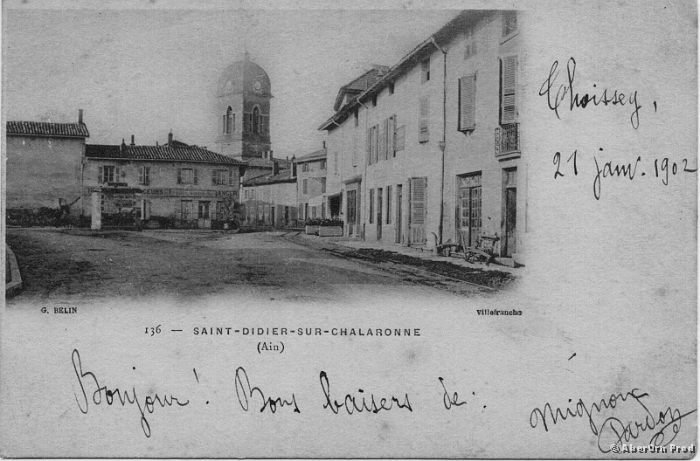 Thoissey,
21 janv. 1902
G. BELIN
Villefranche
136 — SAINT-DIDIER-SUR-CHALARONNE
(Ain)
Bonjour! Bons baisers de:
Mignonx
Pardon
©AberOrn Prad